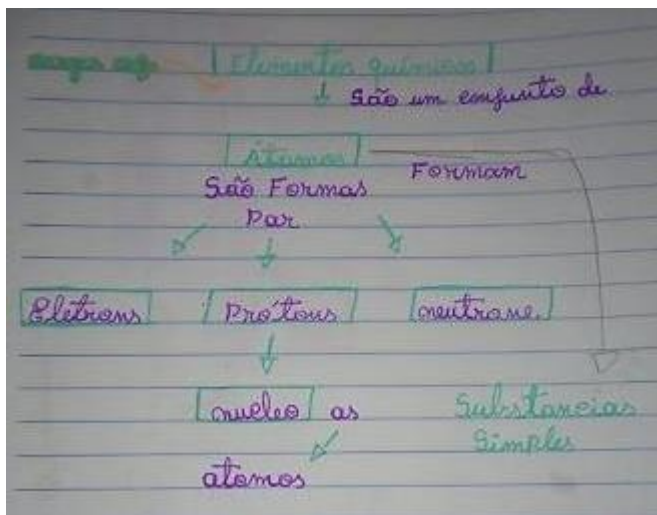 Elementos químicos
São um conjunto de
Átomos
Formam
São Formas
Par
Elétrons Prótons neutrone
nucleo as
Substancias
Simples
atomos